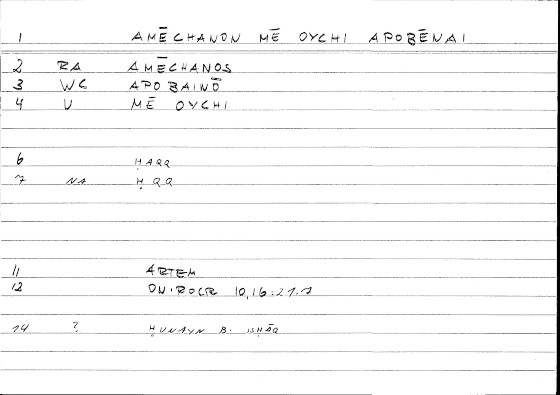 1 AMĒCHANON MĒ OYCHI APOBĒNAI
2 RA AMĒCHANOS
3 WC APOBAINŌ
4 U MĒ OYCHI
6 ḤAQQ
7 NA ḤQQ
11 ARTEM
12 ONIROCR 10,16:21.1
14 ? ḤUNAYN B. ISḤĀQ